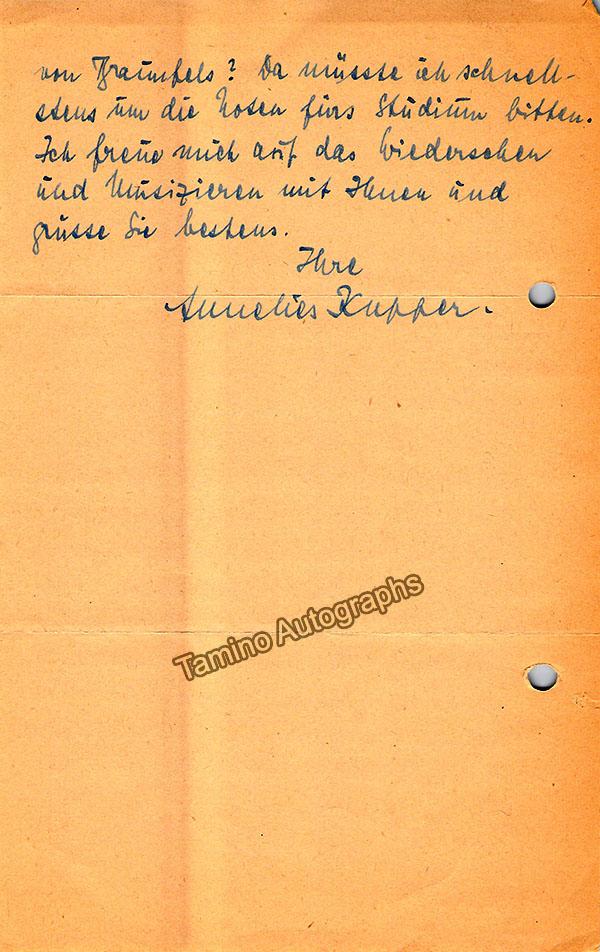 von Braunfels? Da müsste ich schnell-
stens um die Noten fürs Studium bitten.
Ich freue mich auf das Wiedersehen
und Musizieren mit Ihnen und
grüsse Sie bestens.
Ihre
Annelies Kupper.
Tamino Autographs